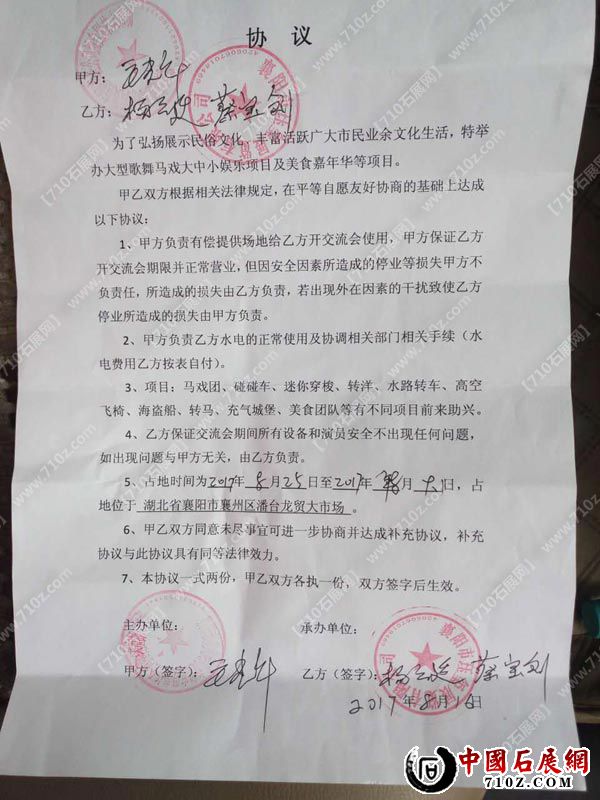 协 议
甲方：
乙方：杨 蔡宝剑
为了弘扬展示民俗文化、丰富活跃广大市民业余文化生活，特举
办大型歌舞马戏大中小娱乐项目及美食嘉年华等项目。
甲乙双方根据相关法律规定，在平等自愿友好协商的基础上达成
以下协议：
1、甲方负责有偿提供场地给乙方开交流会使用，甲方保证乙方
开交流会期限并正常营业，但因安全因素所造成的停业等损失甲方不
负责任，所造成的损失由乙方负责，若出现外在因素的干扰致使乙方
停业所造成的损失由甲方负责。
2、甲方负责乙方水电的正常使用及协调相关部门相关手续（水
电费用乙方按表自付）。
3、项目：马戏团、碰碰车、迷你穿梭、转洋、水路转车、高空
飞椅、海盗船、转马、充气城堡、美食团队等有不同项目前来助兴。
4、乙方保证交流会期间所有设备和演员安全不出现任何问题，
如出现问题与甲方无关，由乙方负责。
5、占地时间为2017年8月25日至2017年 月 日，占
地位于 湖北省襄阳市襄州区潘台龙贸大市场 。
6、甲乙双方同意未尽事宜可进一步协商并达成补充协议，补充
协议与此协议具有同等法律效力。
7、本协议一式两份，甲乙双方各执一份，双方签字后生效。
主办单位： 承办单位：
甲方（签字）： 乙方（签字）：杨 蔡宝剑
2017年8月16日
【710石展网】
www.710z.com
中國石展网
710Z.COM